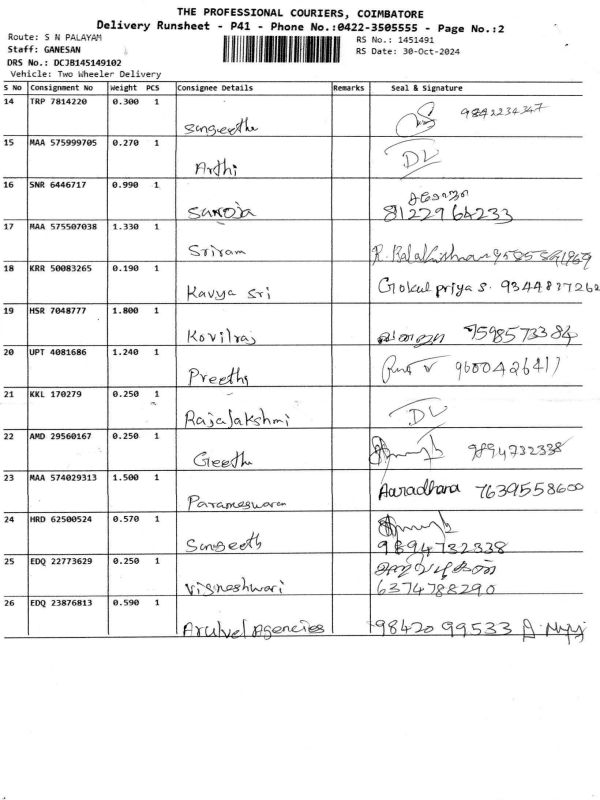 THE PROFESSIONAL COURIERS, COIMBATORE
Delivery Runsheet - P41 - Phone No.:0422-3505555 - Page No.:2
Route: S N PALAYAM
RS No.: 1451491
Staff: GANESAN
RS Date: 30-Oct-2024
DRS No.: DCJB145149102
Vehicle: Two Wheeler Delivery
S No Consignment No Weight PCS Consignee Details Remarks Seal & Signature
14 TRP 7814220 0.300 1
Sangeetha 9842234347
15 MAA 575999705 0.270 1
Arthi DL
16 SNR 6446717 0.990 1
சரோஜா
Saroja 8122964233
17 MAA 575507038 1.330 1
Sriram R. Balakrishnan
18 KRR 50083265 0.190 1
Kavya Sri Gokul priya S. 9344877262
19 HSR 7048777 1.800 1
Kovilraj 7598573384
20 UPT 4081686 1.240 1
Preetha 9600426417
21 KKL 170279 0.250 1
Rajalakshmi DL
22 AMD 29560167 0.250 1
Geetha 9894732338
23 MAA 574029313 1.500 1
Parameswaran Aaradhana 7639558600
24 HRD 62500524 0.570 1
Sangeeth 9894732338
25 EDQ 22773629 0.250 1
Vigneshwari 6374788290
26 EDQ 23876813 0.590 1
Arulvel Agencies 98420 99533